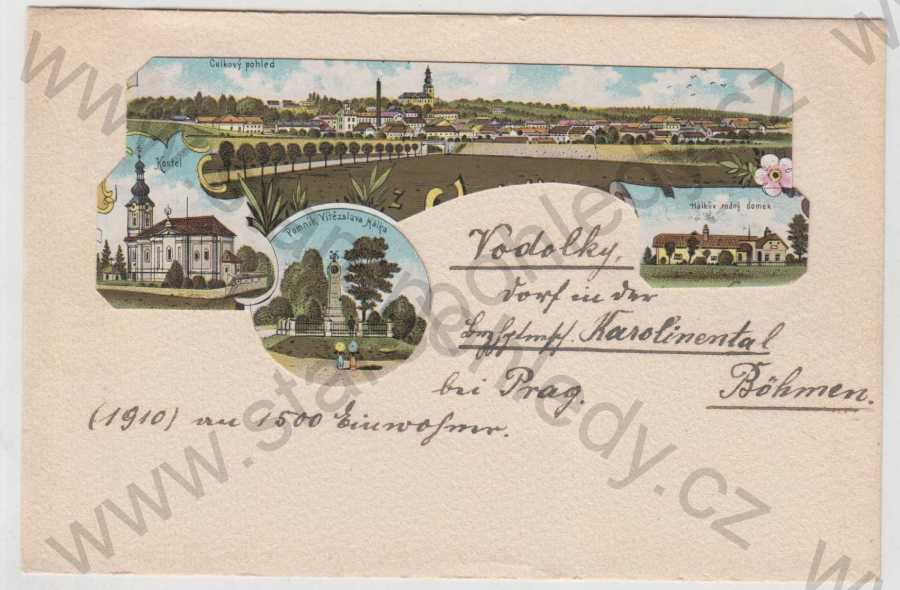 Celkový pohled
Kostel
Pomník Vítězslava Hálka
Hálkův rodný domek
Vodolky,
Dorf in der
Karolinental
bei Prag. Böhmen.
(1910) an 1500 Einwohner.
www.staropohledy.cz